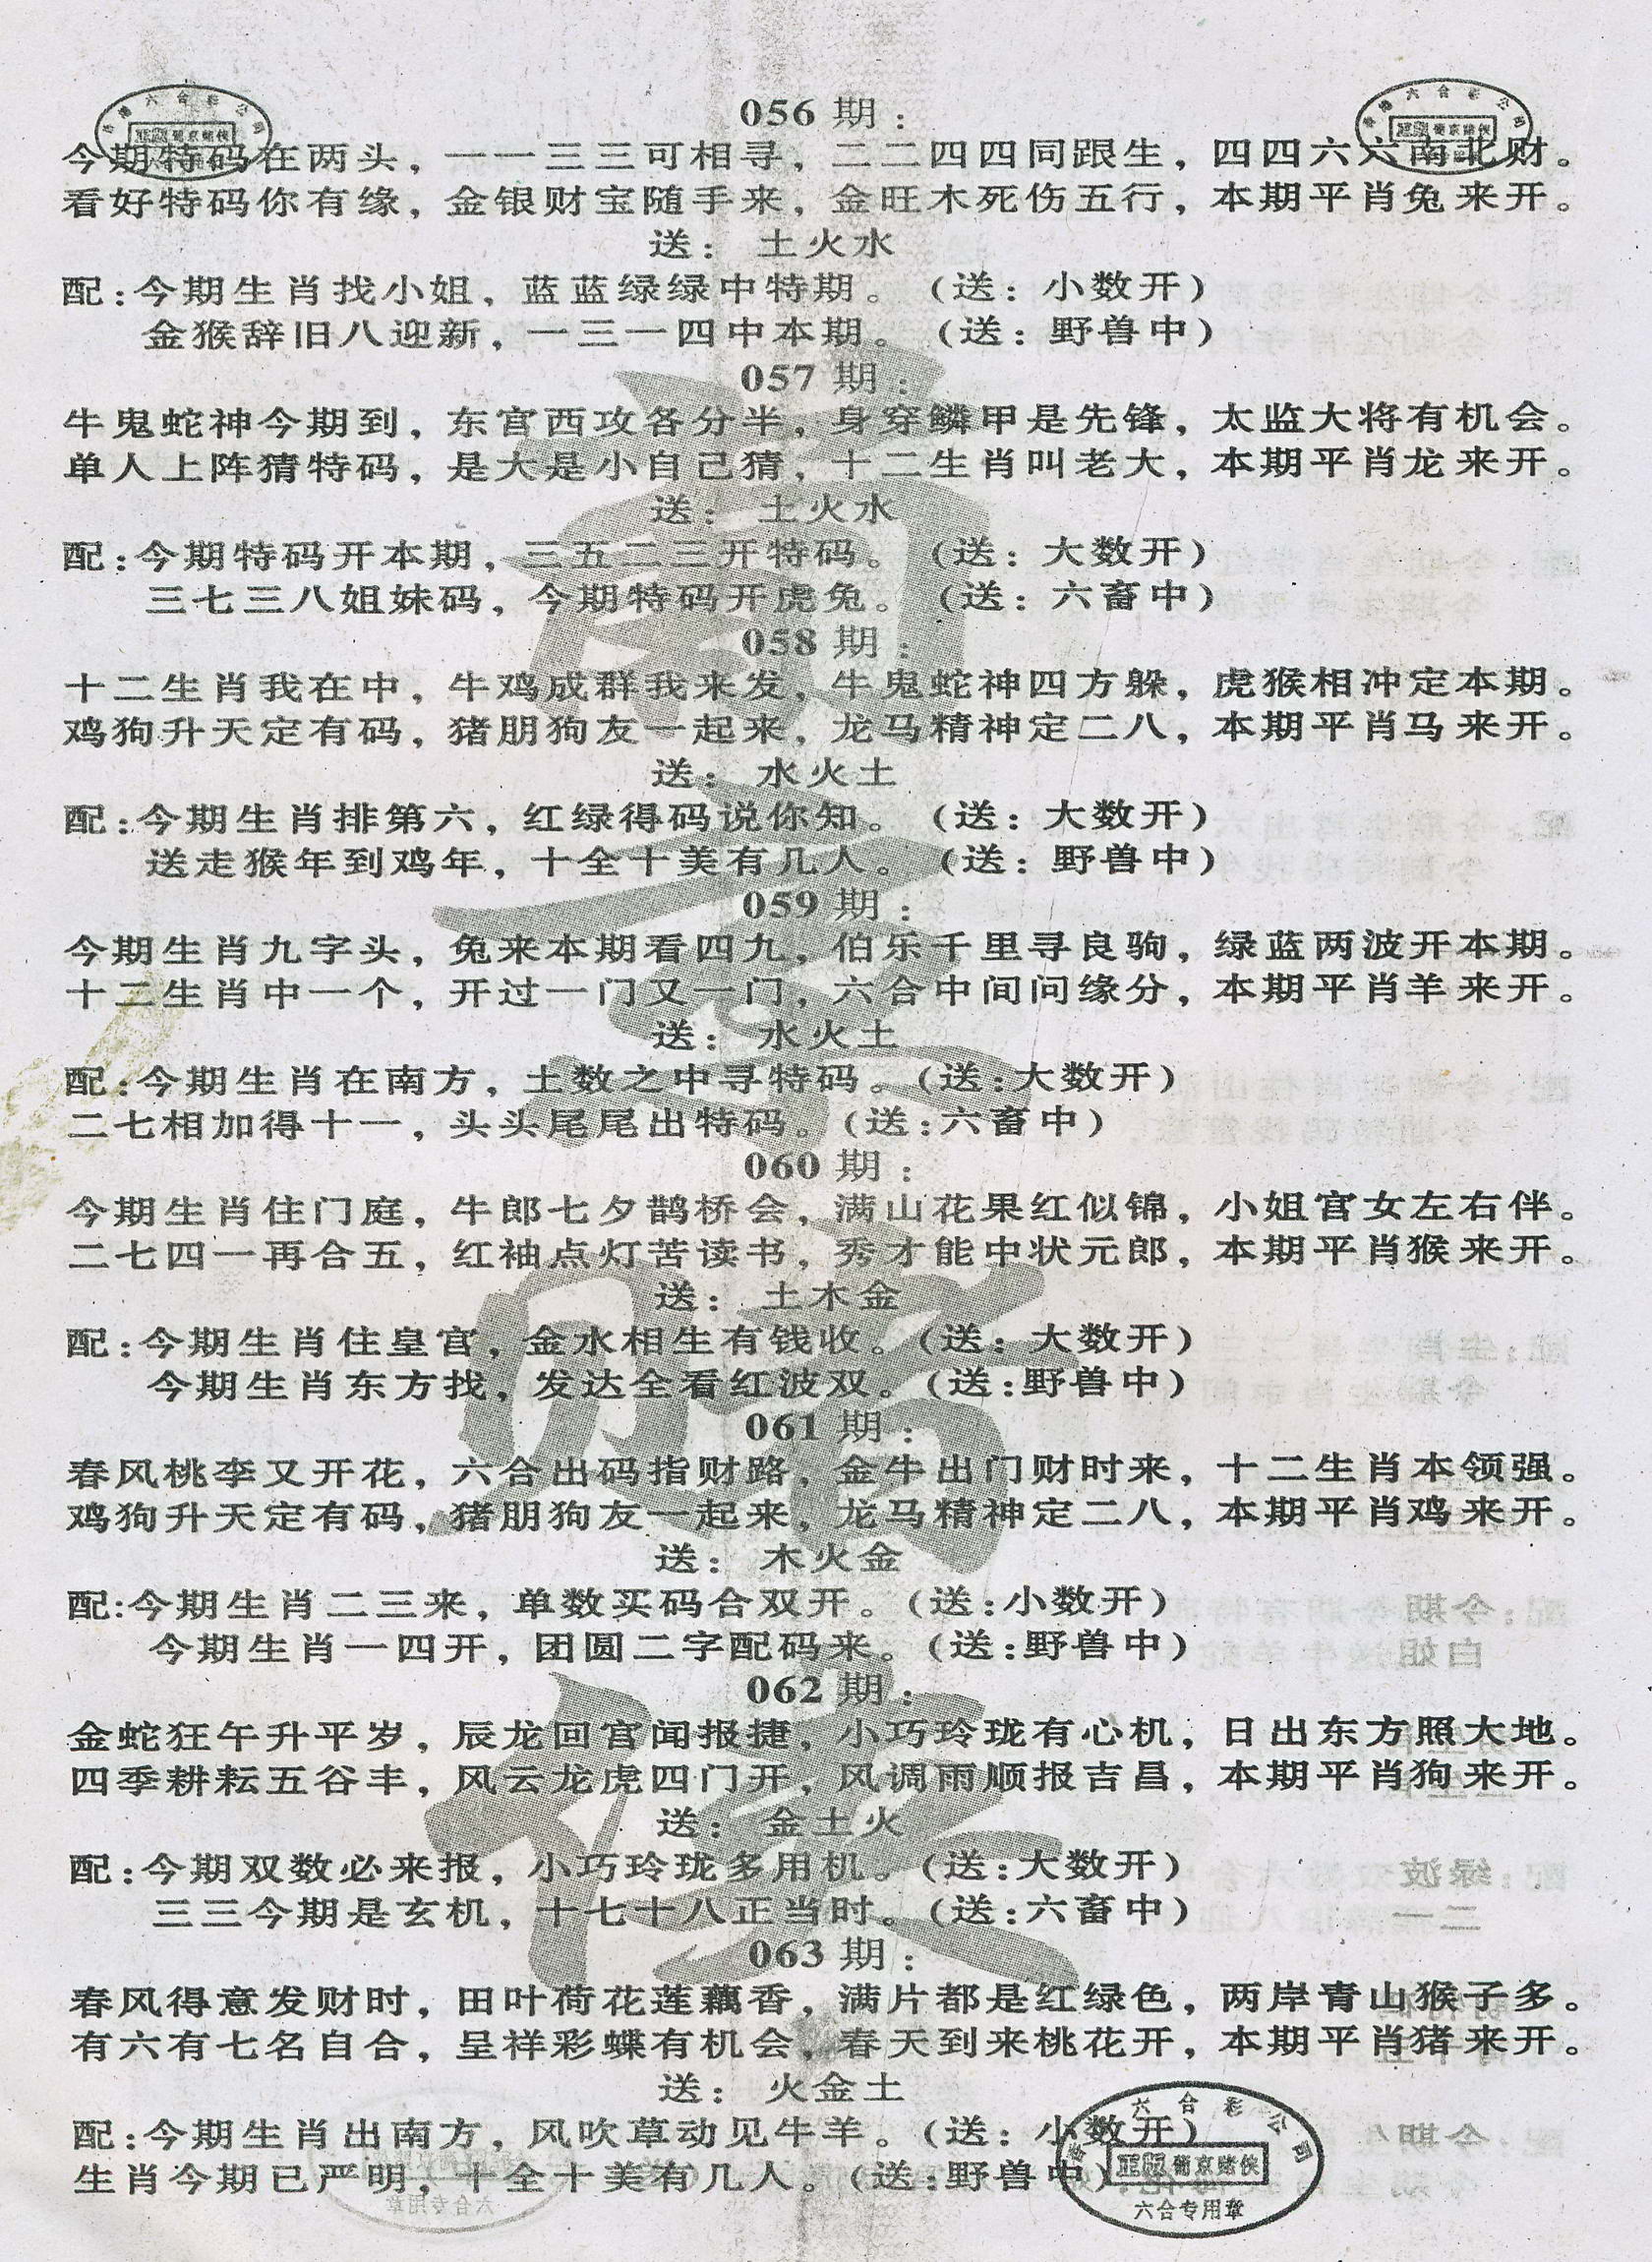 056 期：
今期特码在两头，一一三三可相寻，二二四四同跟生，四四六六南北财。
看好特码你有缘，金银财宝随手来，金旺木死伤五行，本期平肖兔来开。
送： 土火水
配：今期生肖找小姐，蓝蓝绿绿中特期。（送：小数开）
金猴辞旧八迎新，一三一四中本期。（送：野兽中）
057 期：
牛鬼蛇神今期到，东宫西攻各分半，身穿鳞甲是先锋，太监大将有机会。
单人上阵猜特码，是大是小自己猜，十二生肖叫老大，本期平肖龙来开。
送： 土火水
配：今期特码开本期，三五二三开特码。（送：大数开）
三七三八姐妹码，今期特码开虎兔。（送：六畜中）
058 期：
十二生肖我在中，牛鸡成群我来发，牛鬼蛇神四方躲，虎猴相冲定本期。
鸡狗升天定有码，猪朋狗友一起来，龙马精神定二八，本期平肖马来开。
送： 水火土
配：今期生肖排第六，红绿得码说你知。（送：大数开）
送走猴年到鸡年，十全十美有几人。（送：野兽中）
059 期：
今期生肖九字头，兔来本期看四九，伯乐千里寻良驹，绿蓝两波开本期。
十二生肖中一个，开过一门又一门，六合中间问缘分，本期平肖羊来开。
送： 水火土
配：今期生肖在南方，土数之中寻特码。（送：大数开）
二七相加得十一，头头尾尾出特码。（送：六畜中）
060 期：
今期生肖住门庭，牛郎七夕鹊桥会，满山花果红似锦，小姐官女左右伴。
二七四一再合五，红袖点灯苦读书，秀才能中状元郎，本期平肖猴来开。
送： 土木金
配：今期生肖住皇宫，金水相生有钱收。（送：大数开）
今期生肖东方找，发达全看红波双。（送：野兽中）
061 期：
春风桃李又开花，六合出码指财路，金牛出门财时来，十二生肖本领强。
鸡狗升天定有码，猪朋狗友一起来，龙马精神定二八，本期平肖鸡来开。
送： 木火金
配：今期生肖二三来，单数买码合双开。（送：小数开）
今期生肖一四开，团圆二字配码来。（送：野兽中）
062 期：
金蛇狂午升平岁，辰龙回宫闻报捷，小巧玲珑有心机，日出东方照大地。
四季耕耘五谷丰，风云龙虎四门开，风调雨顺报吉昌，本期平肖狗来开。
送： 金土火
配：今期双数必来报，小巧玲珑多用机。（送：大数开）
三三今期是玄机，十七十八正当时。（送：六畜中）
063 期：
春风得意发财时，田叶荷花莲藕香，满片都是红绿色，两岸青山猴子多。
有六有七名自合，呈祥彩蝶有机会，春天到来桃花开，本期平肖猪来开。
送： 火金土
配：今期生肖出南方，风吹草动见牛羊。（送：小数开）
生肖今期已严明，十全十美有几人。（送：野兽中）
六合彩公司
正版 葡京赌侠
六合专用章